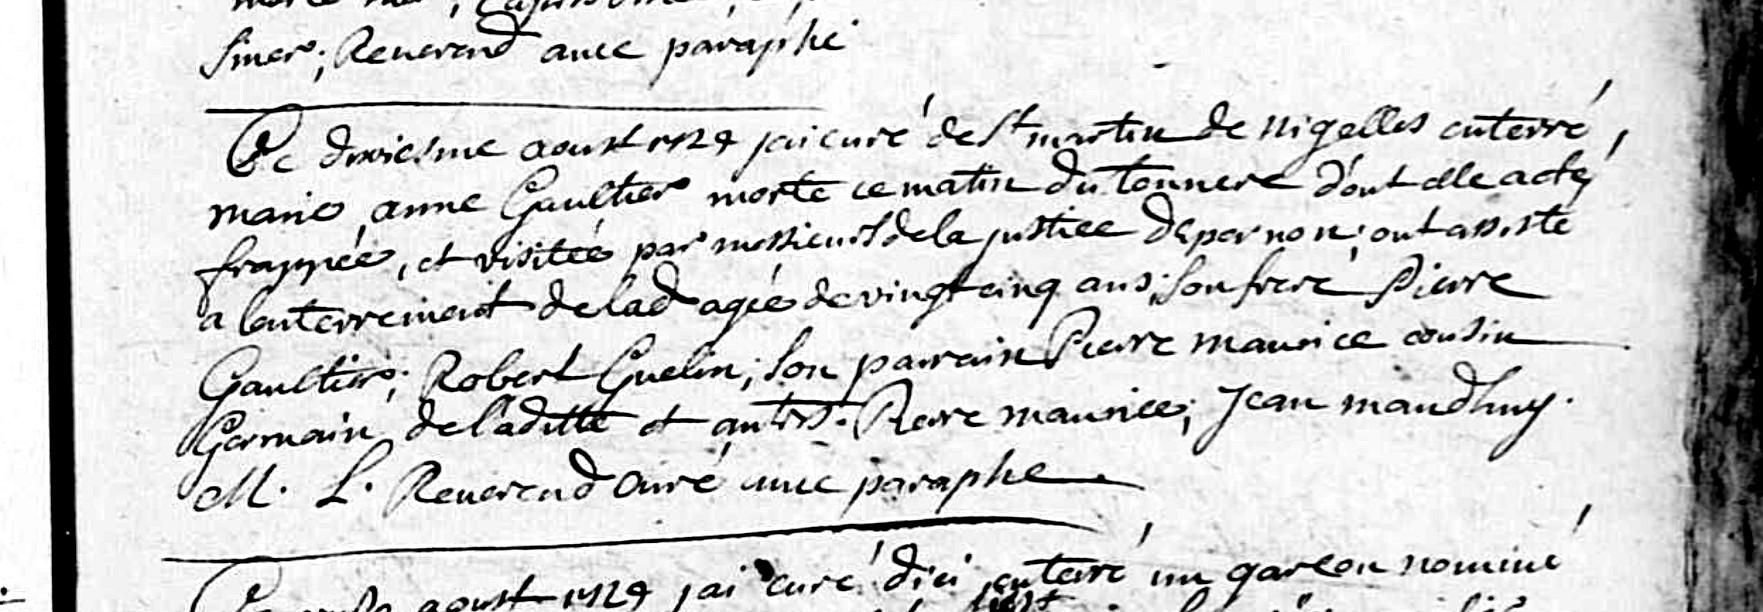 siner; Reuerend auec paraphe
Ce dixiesme aoust 1724 jai curé de St martin de nigelles enterré
marie anne Gaultier morte ce matin du tonnere dont elle a eté
frappée, et visitée par messieurs de la justice depernon; ont assisté
a lenterrement de lad agée de vingt cinq ans; son frere Pierre
Gaultier; Robert Guelin; son parrain Pierre maurice cousin
Germain de laditte et autres. Pierre maurice; Jean maudhuy.
M. L. Reuerend Curé auec paraphe
aoust 1724 jai curé dici enterré un garcon nommé